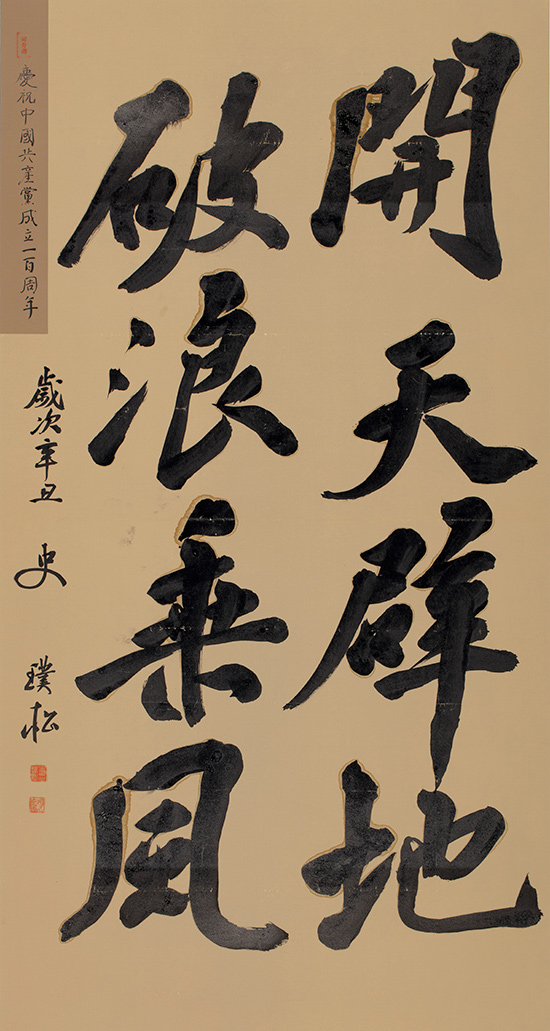 開天辟地
破浪乘風
慶祝中國共産黨成立一百周年
歲次辛丑 史 璞松